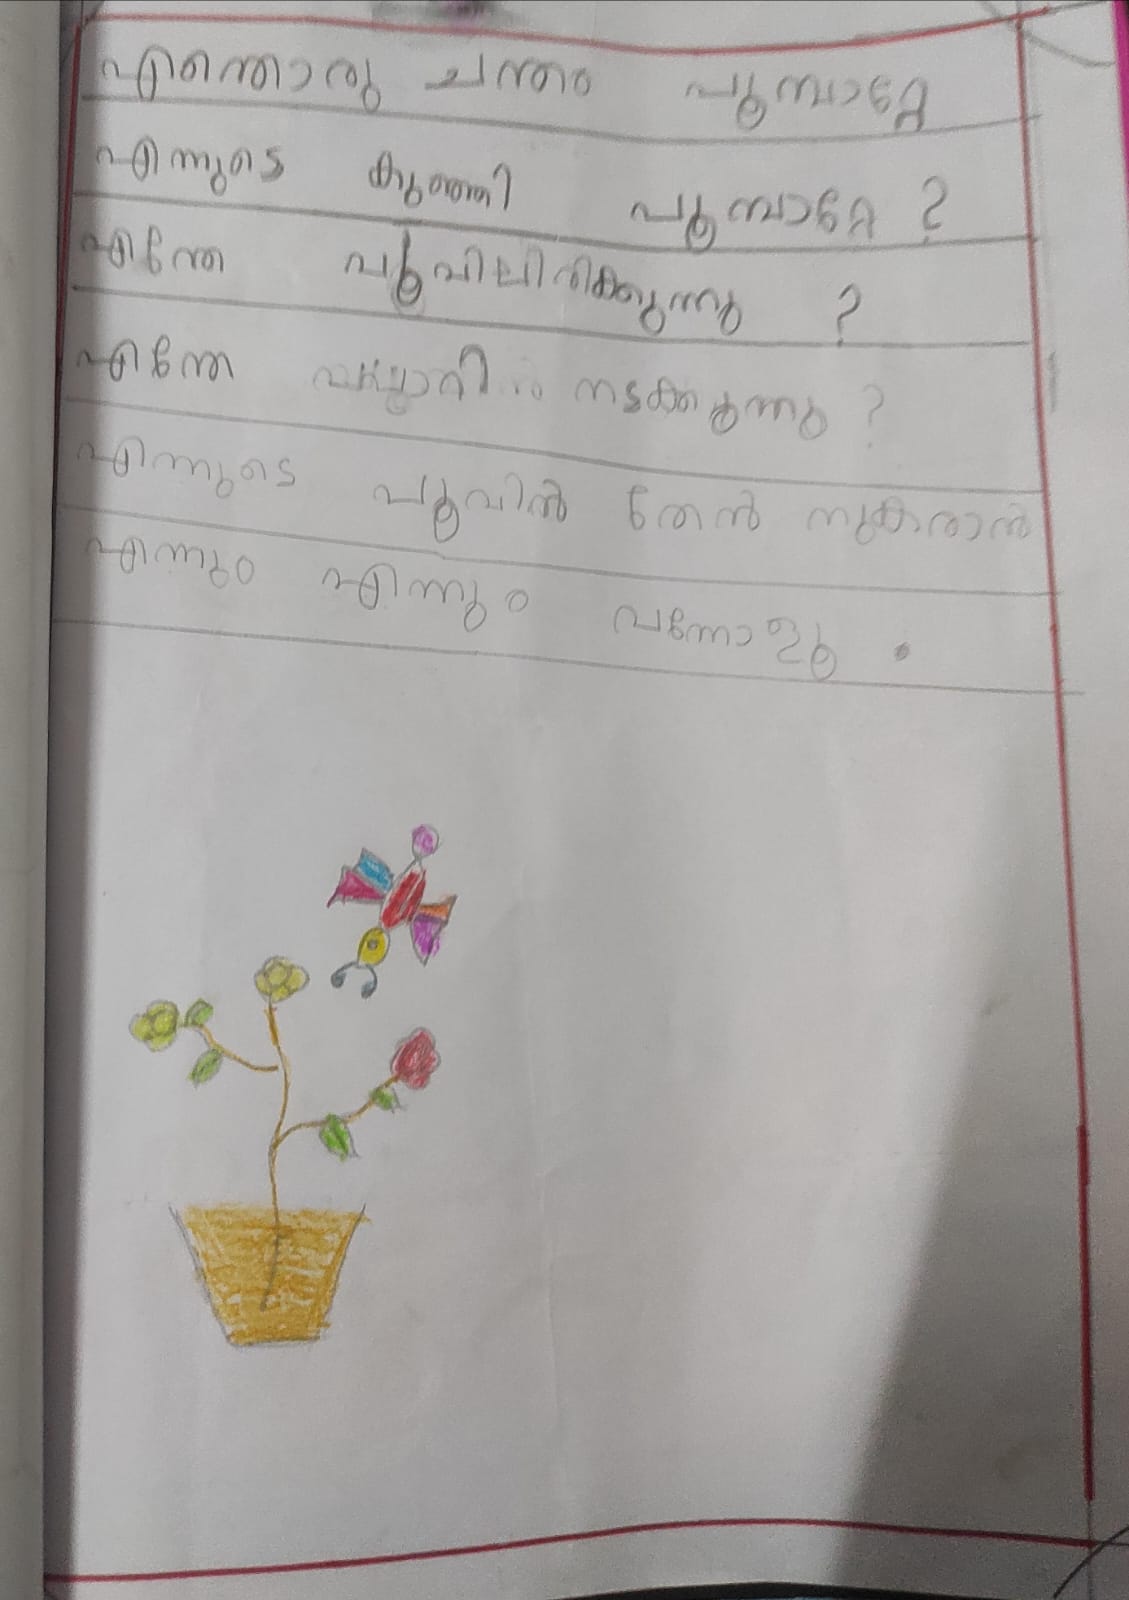 എന്തൊരു ചന്തം പൂമ്പാറ്റേ
എന്നുടെ കുഞ്ഞി പൂമ്പാറ്റേ ?
എന്തേ പൂവിലിരിക്കുന്നു ?
എന്തേ നടക്കുന്നു ?
എന്നുടെ പൂവിൽ തേൻ നുകരാൻ
എന്നും എന്നും വന്നോളൂ .